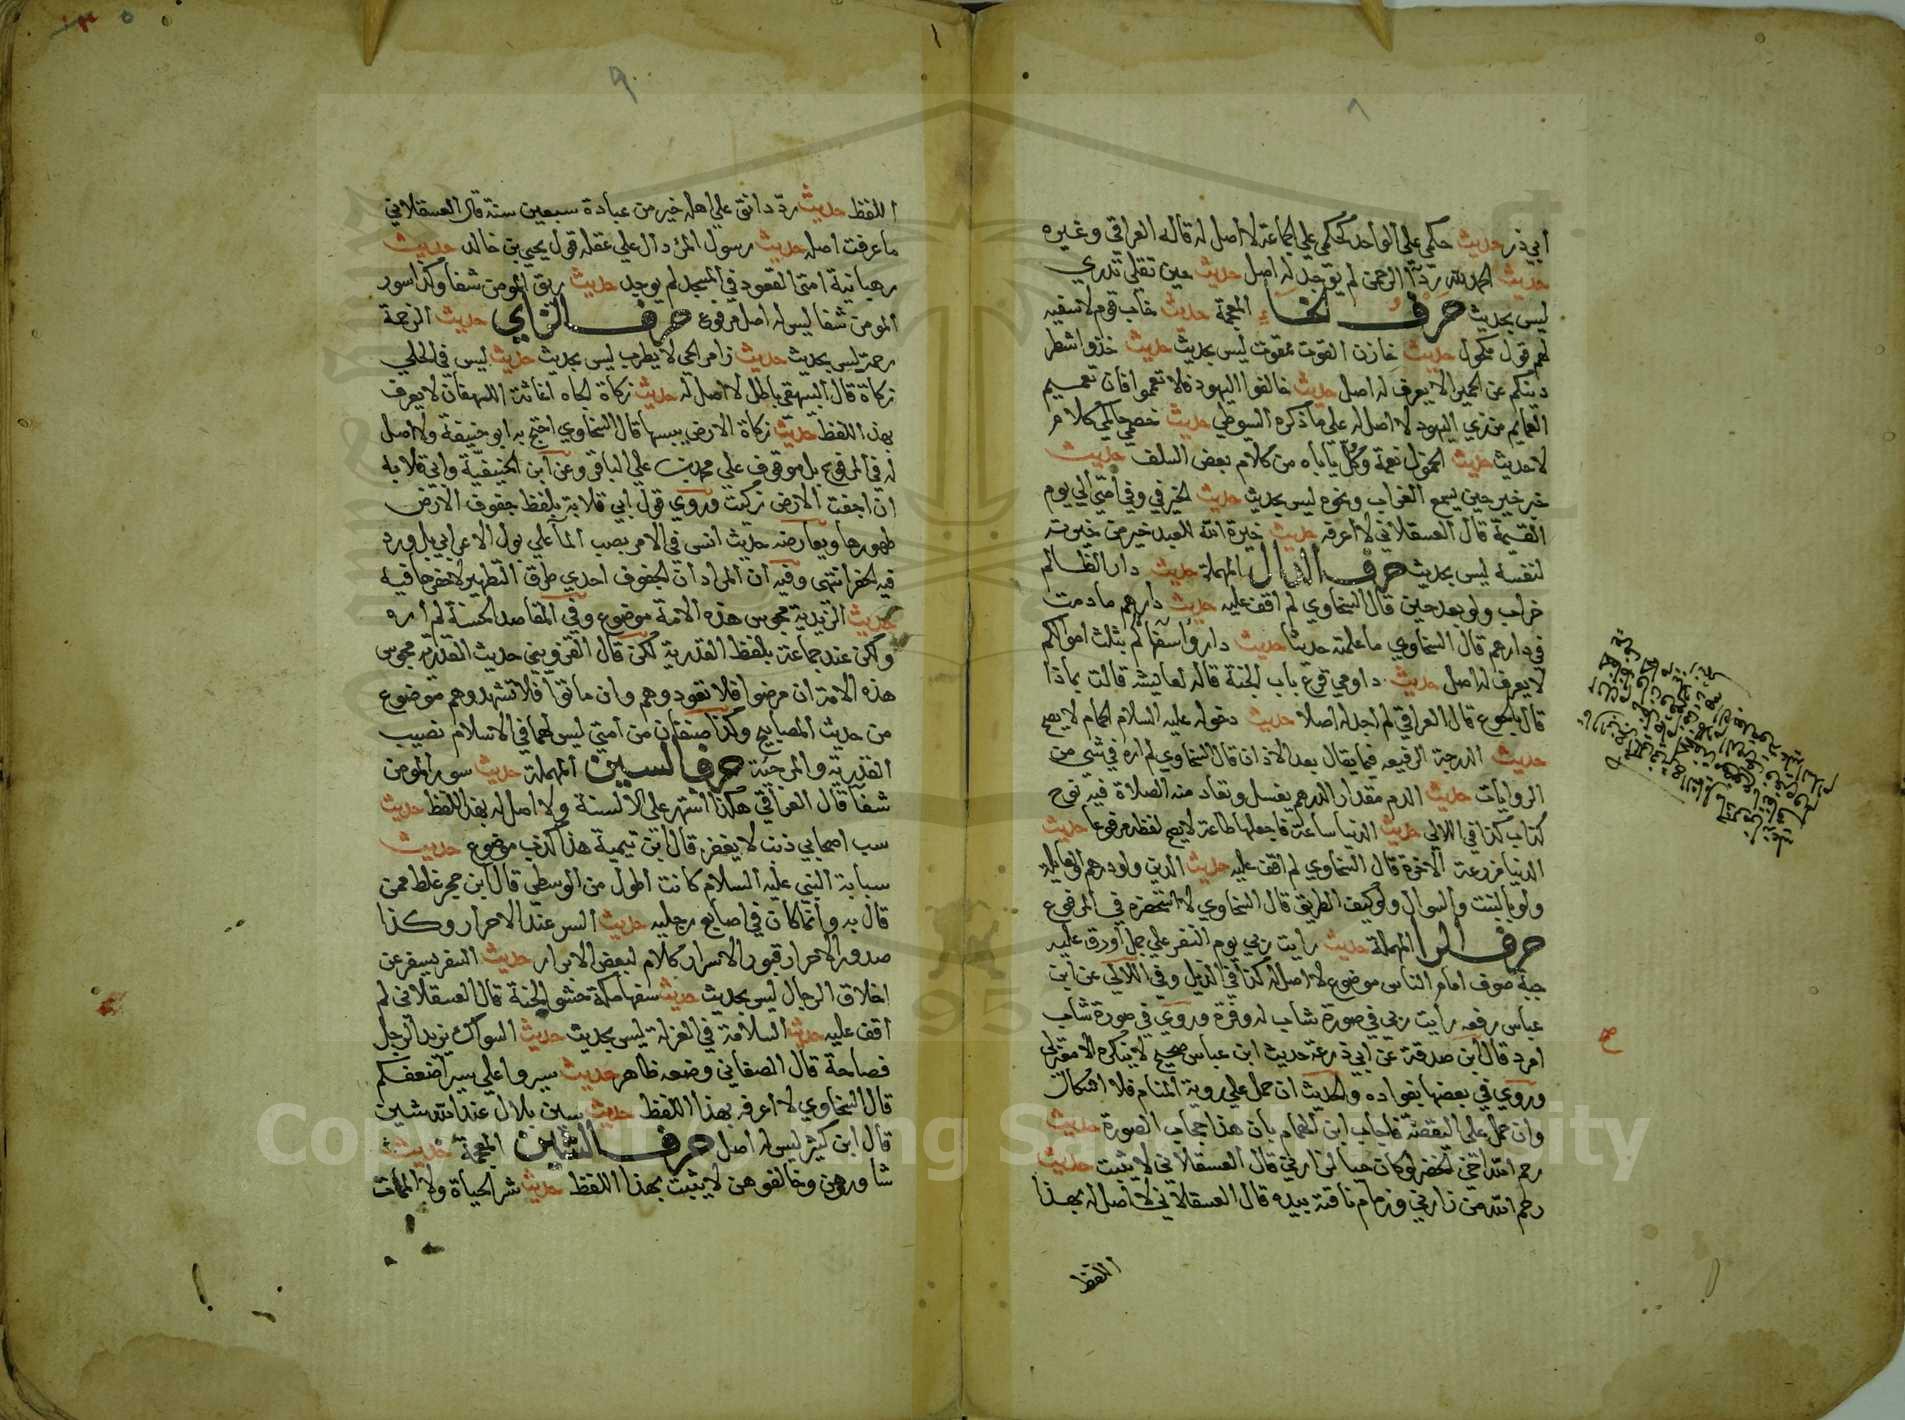 ٨
أبي ذر حديث حكمي علي الواحد كحكمي علي الجماعة لا اصل له قاله العراقي وغيره
حديث الحمد لله ردآا الرحمن لم يوجد له اصل حديث حين تقلي تدري
ليس بحديث حرف الخاء المعجمة حديث خاب قوم لا سفيه
لهم قول مكحول حديث خازن القوت ممقوت ليس بحديث حديث خذوا شطر
دينكم عن الحميرا لا يعرف له اصل حديث خالفوا اليهود فلا تعمموا فان تعميم
العمايم من زي اليهود لا اصل له علي ما ذكره السيوطي حديث خصمي حاكمي كلام
لا حديث حديث الخمول نعمة وكل يأباه من كلام بعض السلف حديث
خير خير حين يسمع الغراب ونحوه ليس بحديث حديث الخير في وفي أمتي الي يوم
القيمة قال العسقلاني لا اعرفه حديث خيرة الله للعبد خير من خيرته
لنفسه ليس بحديث حرف الدال المهملة حديث دار الظالم
خراب ولو بعد حين قال السخاوي لم اقف عليه حديث دارهم ما دمت
في دارهم قال السخاوي ما علمته حديثا حديث داروا سفهاكم بثلث اموالكم
لا يعرف له اصل حديث داومي قرع باب الجنة قاله لعايشه قالت بماذا
قال بالجوع قال العراقي لم اجد له اصلا حديث دخوله عليه السلام الحمام لا يصح
حديث الدرجة الرفيعه فيما يقال بعد الاذان قال السخاوي لم اره في شي من
الروايات حديث الدم مقدار الدرهم يغسل وتعاد منه الصلاة فيه نوح
كذاب كذا في اللالي حديث الدنيا ساعة فاجعلها طاعة لا يصح لفظه مرفوعا حديث
الدنيا مزرعة الاخرة قال السخاوي لم اقف عليه حديث الدين ولو درهم والعايلة
ولو بالبنت والسوال ولو كيف الطريق قال السخاوي لا استحضره في المرفوع
حرف الرا المهملة حديث رايت ربي يوم النفر علي جمل أورق عليه
جبة صوف امام الناس موضوع لا اصل له كذا في الذيل وفي اللالي عن ابن
عباس رفعه رأيت ربي في صورة شاب له وفرة وروي في صورة شاب
امرد قال ابن صدقة عن ابي ذرعة حديث ابن عباس صحيح لا ينكره الا معتزلي
وروي في بعضها بفواده والحديث ان حمل علي روية المنام فلا اشكال
وان حمل علي اليقضة فاجاب ابن الهمام بان هذا حجاب الصورة حديث
رحم الله اخي الخضر لو كان حيا لزارني قال العسقلاني لا يثبت حديث
رحم الله من زارني وزمام ناقته بيده قال العسقلاني لا اصل له بهذا
اللفظ
٩
١
اللفظ حديث رد دانق علي اهله خير من عبادة سبعين سنة قال العسقلاني
ما عرفت اصله حديث رسول المرء دال علي عقله قول يحيي بن خالد حديث
رهبانية امتي القعود في المسجد لم يوجد حديث ريق المومن شفا وكذا سور
المومن شفا ليس له اصل مرفوع حرف الزاي حديث الزحمة
رحمة ليس بحديث حديث زامر الحي لا يطرب ليس بحديث حديث ليس في الحلي
زكاة قال البيهقي باطل لا اصل له حديث زكاة الجاه اغاثة اللهفان لا يعرف
بهذا اللفظ حديث زكاة الارض يبسها قال السخاوي احتج به ابو حنيفة ولا اصل
له في المرفوع بل موقوف علي محمد بن علي الباقر وعن ابن الحنيفية وابي قلابه
اذا جفت الارض زكيت وروي قول ابي قلابة بلفظ جفوف الارض
طهورها ويعارضه حديث انس في الامر بصب المآ علي بول الاعرابي بل ورد
فيه الحفر انتهي وفيه أن المراد أن الجفوف احدي طرق التطهير
حديث الزيدية مجوس هذه الامة موضوع وفي المقاصد الحسنة لم أره
ولكن عند جماعة بلفظ القدرية لكن قال القزويني حديث القدرية مجوس
هذه الامة ان مرضوا فلا تعودوهم وان ماتوا فلا تشهدوهم موضوع
من حديث المصابيح وكذا صنفان من أمتي ليس لهما في الاسلام نصيب
القدرية والمرجئة حرف السين المهملة حديث سور المومن
شفآ قال العراقي هكذا اشتهر علي الالسنة ولا اصل له بهذا اللفظ حديث
سب اصحابي ذنب لا يغفر قال ابن تيمية هذا كذب موضوع حديث
سبابة النبي عليه السلام كانت أطول من الوسطي قال ابن حجر غلط ممن
قال به وانما كان في اصابع رجليه حديث السر عند الاحرار وكذا
صدور الاحرار قبور الاسرار كلام لبعض الابرار حديث السفر يسفر عن
اخلاق الرجال ليس بحديث حديث سفها مكة حشو الجنة قال العسقلاني لم
أقف عليه حديث السلامة في العزلة ليس بحديث حديث السواك يزيد الرجل
فصاحة قال الصغاني وضعه ظاهر حديث سيروا علي سير اضعفكم
قال السخاوي لا اعرفه بهذا اللفظ حديث سين بلال عند الله شين
قال ابن كثير ليس له اصل حرف الشين المعجمة حديث
شاوروهن وخالفوهن لا يثبت بهذا اللفظ حديث شر الحياة ولا الممات
Copyright © King Saud University